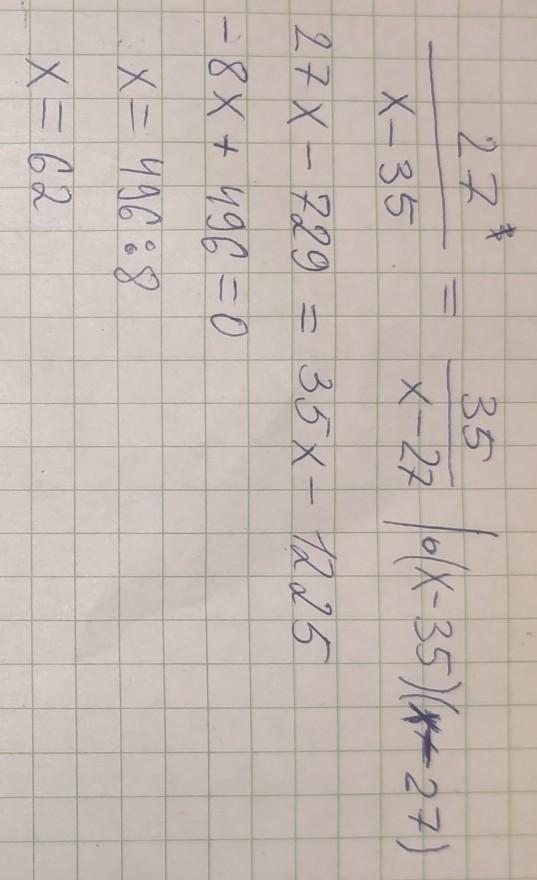 27* / x-35 = 35 / x-27 | •(x-35)(x-27)
27x - 729 = 35x - 1225
-8x + 496 = 0
x = 496:8
x = 62